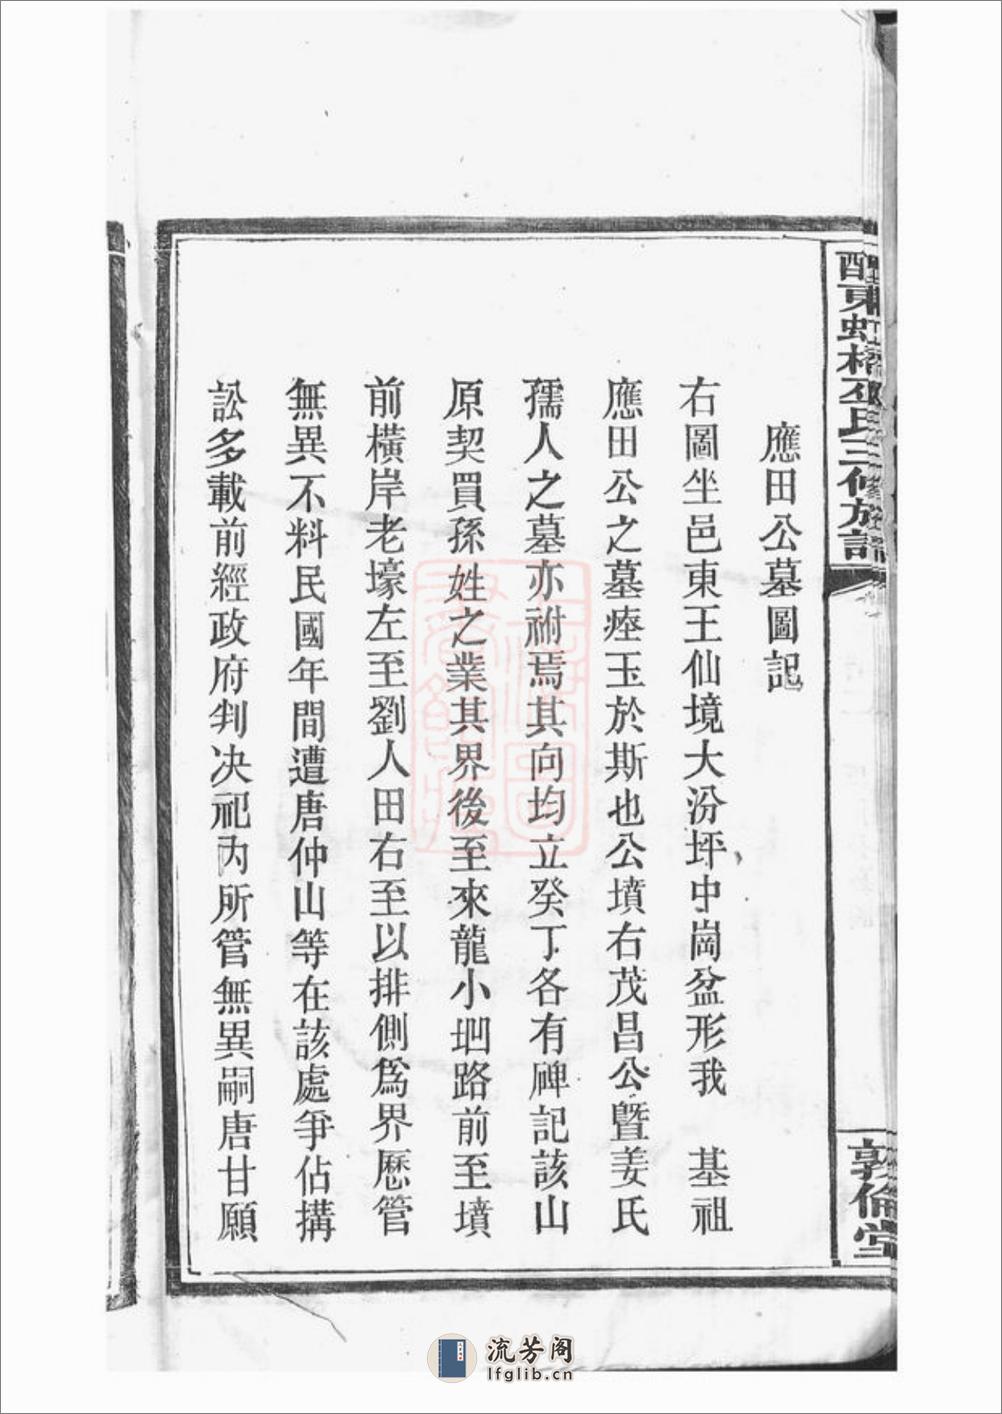 醴東虹橋巫氏三修族譜
敦倫堂
應田公墓圖記
右圖坐邑東王仙境大汾坪中崗盆形我 基祖
應田公之墓瘞玉於斯也公墳右茂昌公暨姜氏
孺人之墓亦祔焉其向均立癸丁各有碑記該山
原契買孫姓之業其界後至來龍小坳路前至墳
前橫岸老壕左至劉人田右至以排側為界歷管
無異不料民國年間遭唐仲山等在該處爭佔搆
訟多載前經政府判决祀內所管無異嗣唐甘願
流芳阁
lfglib.cn